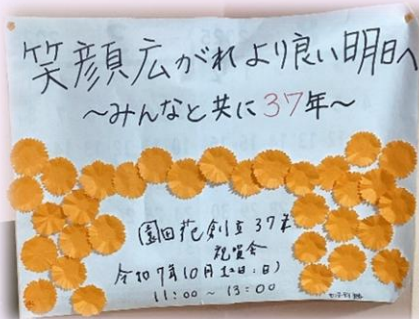 笑顔広がれより良い明日へ
～みんなと共に37年～
園田苑創立37年
祝賀会
令和7年10月12日(日)
11:00～13:00